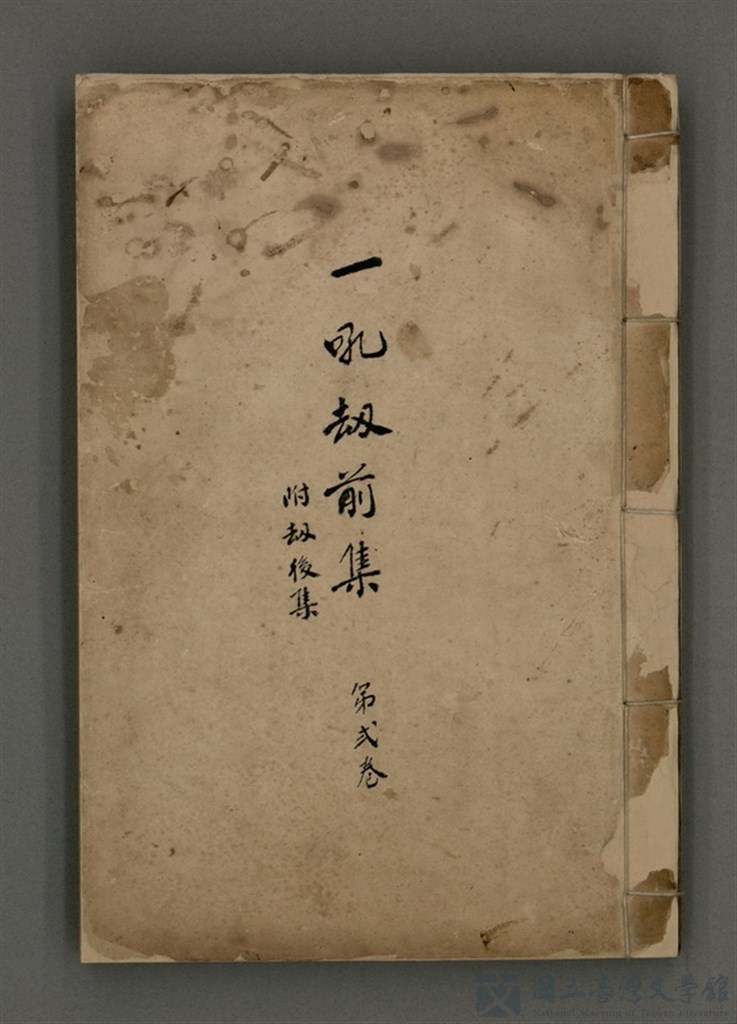 一吼劫前集
附劫後集
第弍卷
國立臺灣文學館
National Museum of Taiwan Literature